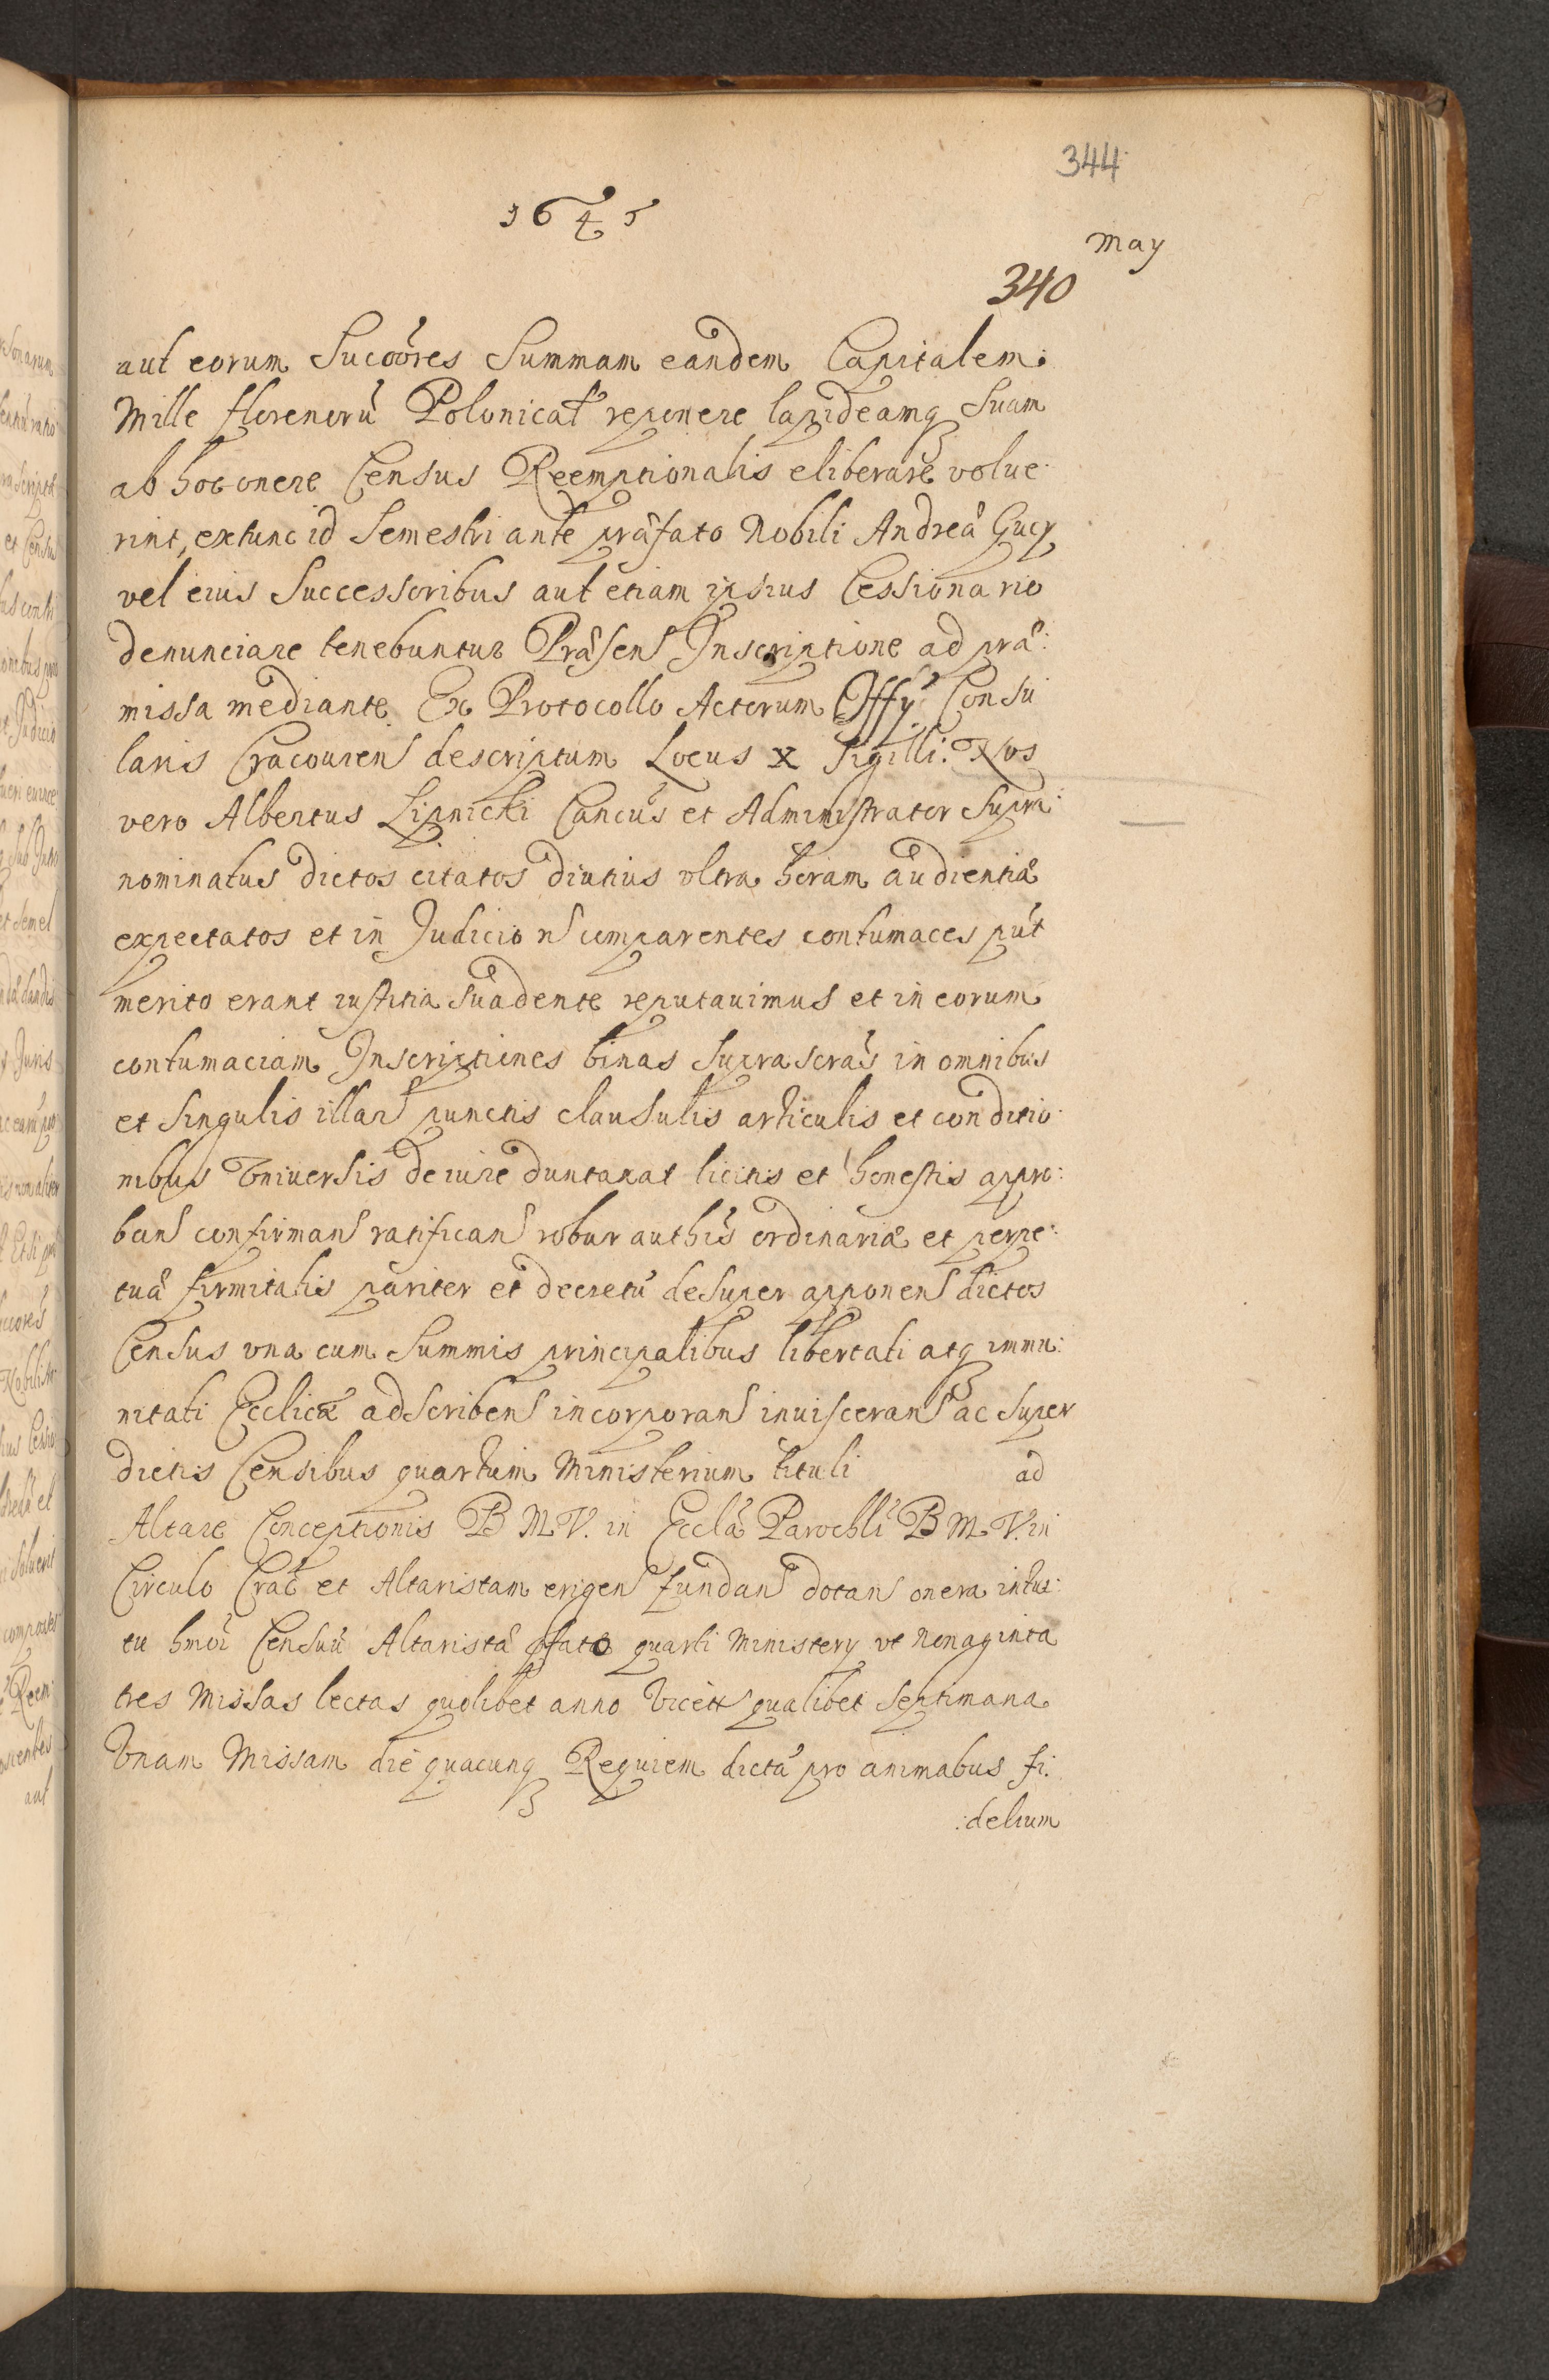 344
1645
May
340
aut eorum Succores Summam eandem Capitalem
Mille florenorũ Polonical reponere lapideamq Suam
ab hoc onere Census Reemptionalis eliberare volue
rint, extunc id Semestri ante præfato Nobili Andreæ Gucy
vel eius Successoribus aut etiam ipsius Cessionario
denunciare tenebuntur Præsen Inscriptione ad præ:
missa mediante Ex Protocollo Actorum Offy Consu
laris Cracouien descriptum Locus x Sigilli. Nos
vero Albertus Lipnicki Cancus et Administrator Supra
nominatus dictos citatos diutius vltra horam audientiæ
expectatos et in Judicio n comparentes contumaces put
merito erant iustitia suadente reputauimus et in eorum
contumaciam Inscriptiones binas Suprascras in omnibus
et Singulis illar punctis clausulis articulis et conditio
nibus Vniversis de iure duntaxat licitis et honestis appro:
ban confirman ratifican robur authis ordinariæ et perpe:
tuæ firmitatis pariter et decretũ desuper apponen dictos
Census vna cum Summis principalibus libertati atq immu:
nitati Ecclicæ adscriben incorporan inuisceran ac Super
dictis Censibus quartum Ministerium tituli ad
Altare Conceptionis B M V. in Eccla Parochli B M V. in
Circulo Crac et Altaristam erigen fundan dotan onera intui:
tu hmoi Censuũ Altaristæ pfato quarti Ministery vt nonaginta
tres Missas lectas quolibet anno vicett qualibet Septimana
Vnam Missam die quacunq Requiem dictã pro animabus fi:
:delium